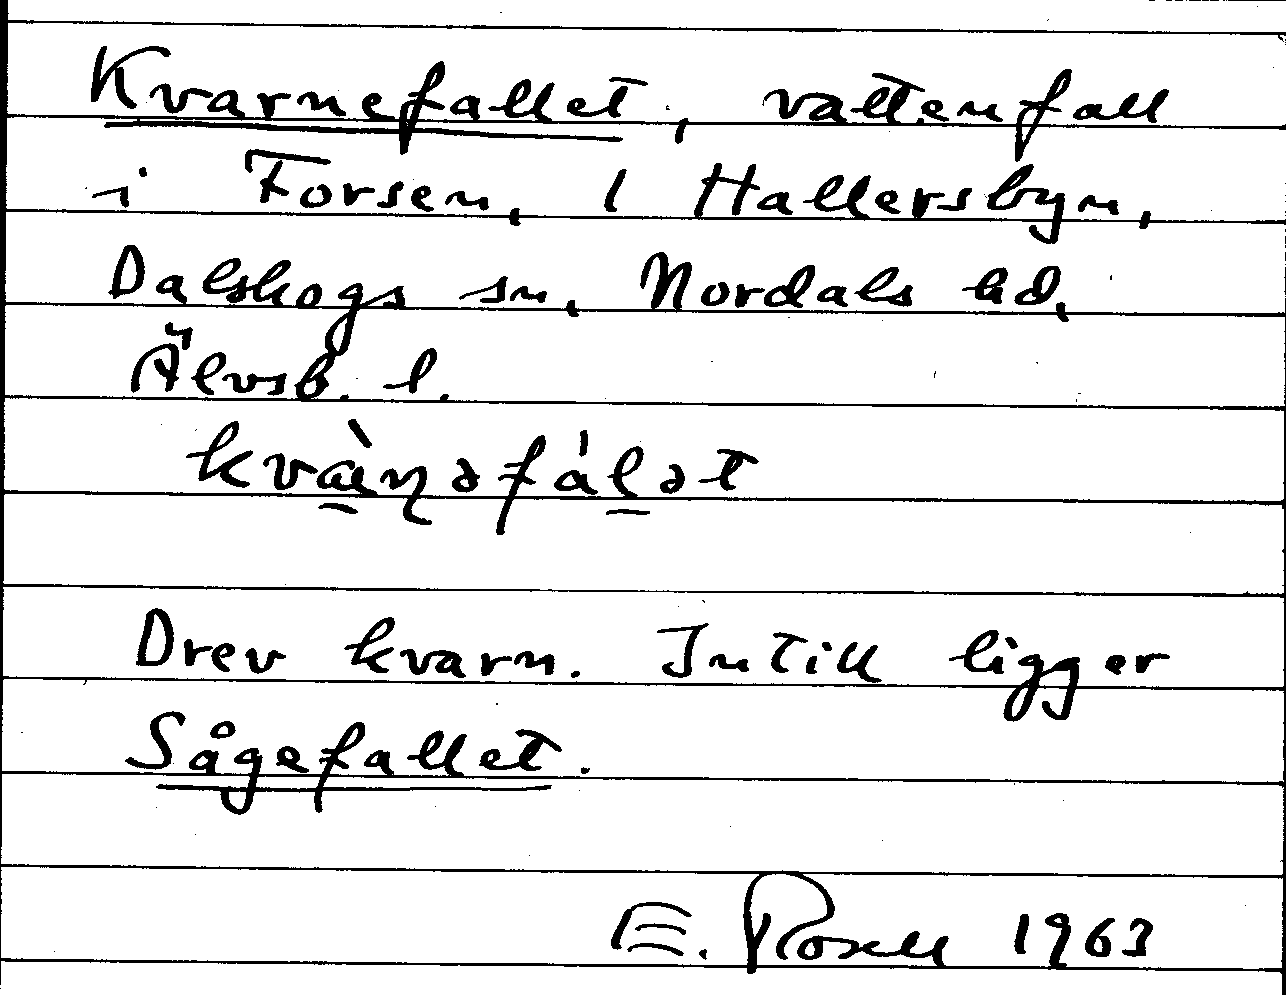 Kvarnefallet, vattenfall
i Forsen, 1 Hallersbyn,
Dalskogs sn, Nordals hd,
Älvsb. l.
kvàɳəfálət
Drev kvarn. Intill ligger
Sågefallet.
E. Rosell 1963